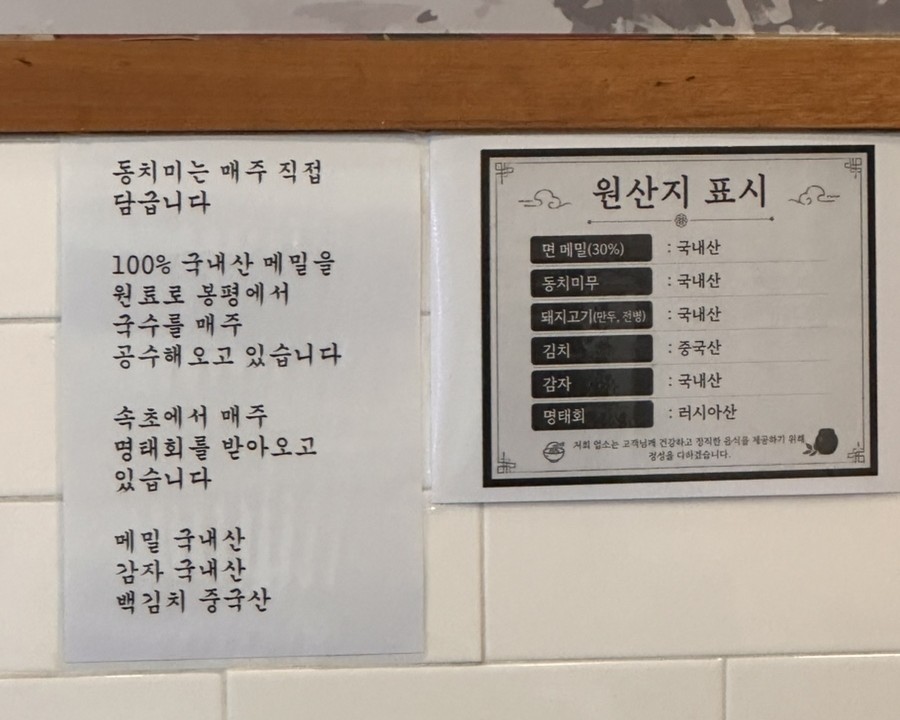 동치미는 매주 직접
담급니다
100% 국내산 메밀을
원료로 봉평에서
국수를 매주
공수해오고 있습니다
속초에서 매주
명태회를 받아오고
있습니다
메밀 국내산
감자 국내산
백김치 중국산
원산지 표시
면 메밀(30%) : 국내산
동치미무 : 국내산
돼지고기(만두, 전병) : 국내산
김치 : 중국산
감자 : 국내산
명태회 : 러시아산
저희 업소는 고객님께 건강하고 정직한 음식을 제공하기 위해
정성을 다하겠습니다.